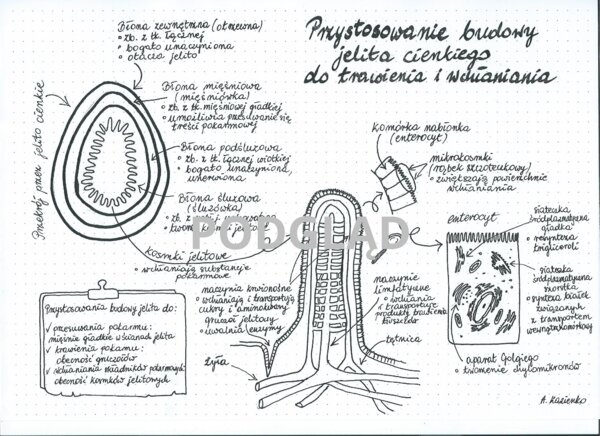 Przystosowanie budowy
jelita cienkiego
do trawienia i wchłaniania
Błona zewnętrzna (otrzewna)
• zb. z tk. łącznej
• bogato unaczyniona
• otacza jelito
Przekrój przez jelito cienkie
Błona mięśniowa
(mięśniówka)
• zb. z tk. mięśniowej gładkiej
• umożliwia przesuwanie się
treści pokarmowej
Błona podśluzowa
• zb. z tk. łącznej wiotkiej
• bogato unaczyniona,
unerwiona
Błona śluzowa
(śluzówka)
• zb. z
• tworzy
kosmki jelitowe
• wchłaniają substancje
pokarmowe
PODGLĄD
Komórka nabłonka
(enterocyt)
mikrokosmki
(rąbek szczoteczkowy)
• zwiększają powierzchnię
wchłaniania
enterocyt
siateczka
śródplazmatyczna
gładka
• resynteza
trigliceroli
siateczka
śródplazmatyczna
szorstka
• synteza białek
związanych
z transportem
wewnątrzkomórkowym
aparat Golgiego
• tworzenie chylomikronów
naczynia krwionośne
• wchłaniają i transportują
cukry i aminokwasy
gruczoł jelitowy
• uwalnia enzymy
żyła
naczynie
limfatyczne
• wchłania
i transportuje
produkty trawienia
tłuszczów
tętnica
Przystosowania budowy jelita do:
✓ przesuwania pokarmu:
mięśnie gładkie w ścianach jelita
✓ trawienia pokarmu:
obecność gruczołów
✓ wchłaniania składników pokarmowych:
obecność kosmków jelitowych
A. Kazienko